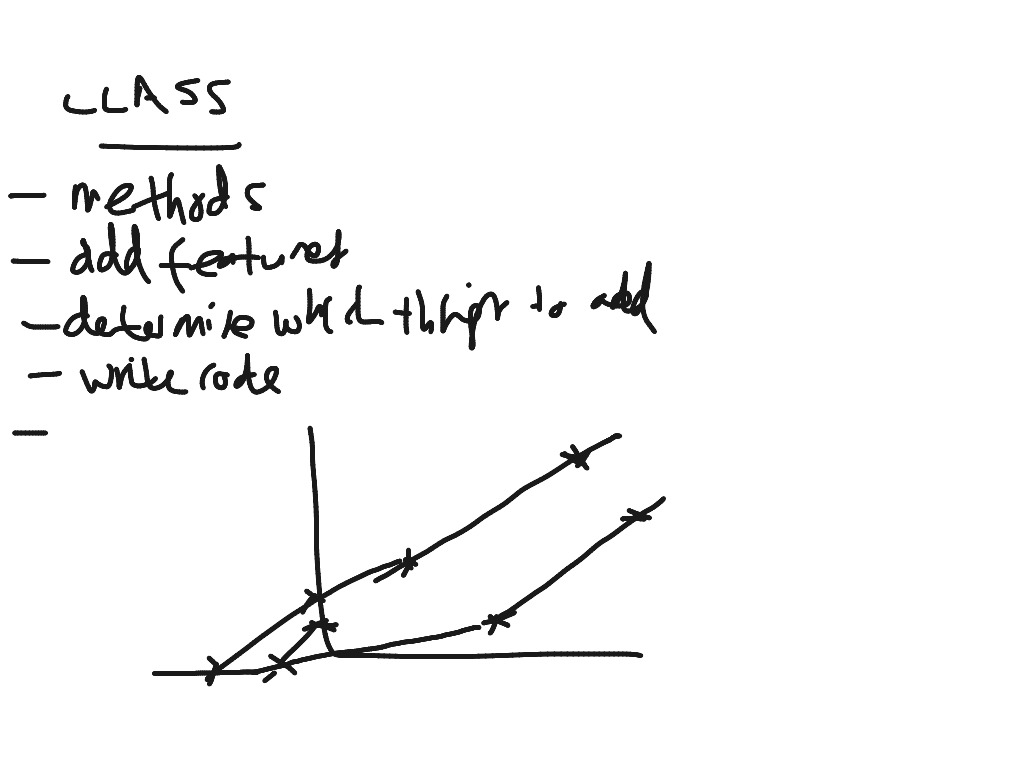 CLASS
- methods
- add features
- determine which things to add
- write code
-